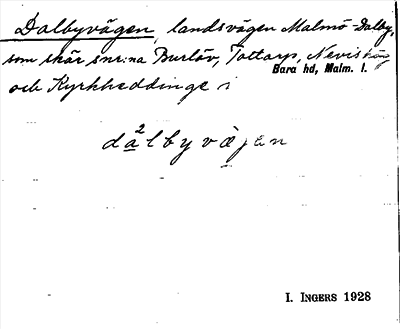 Dalbyvägen, landsvägen Malmö-Dalby,
som skär snr:na Burlöv, Tottarp, Nevishög
Bara hd, Malm. l.
och Kyrkheddinge i
da²lbyvä̀jen
I. INGERS 1928